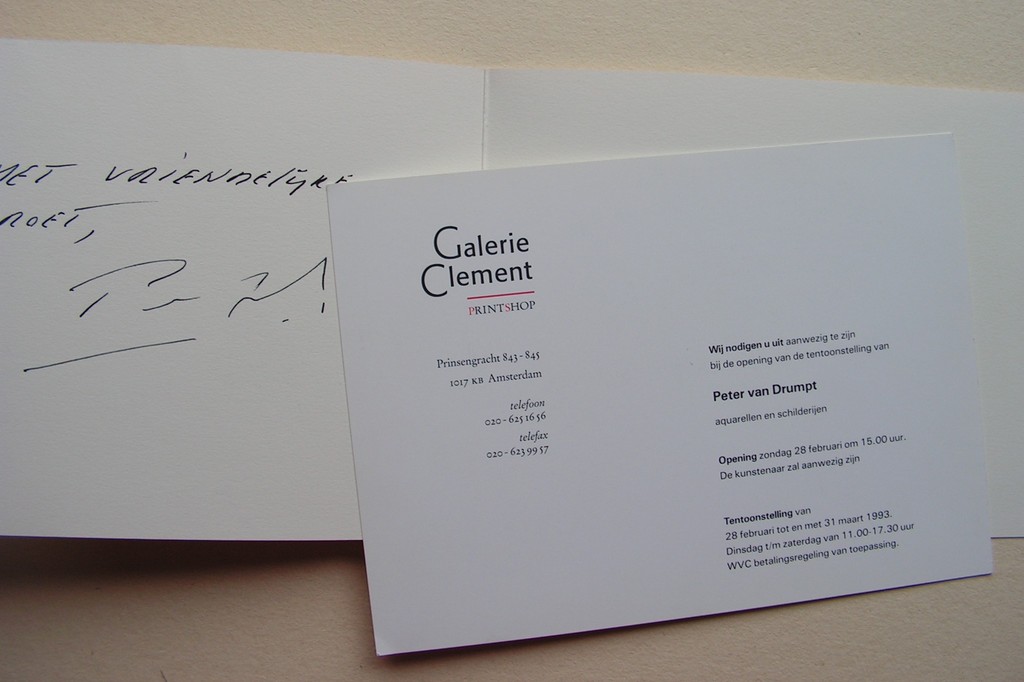 MET VRIENDELIJKE
ROET,
Galerie
Clement
PRINTSHOP
Prinsengracht 843-845
1017 KB Amsterdam
telefoon
020-625 16 56
telefax
020-623 99 57
Wij nodigen u uit aanwezig te zijn
bij de opening van de tentoonstelling van
Peter van Drumpt
aquarellen en schilderijen
Opening zondag 28 februari om 15.00 uur.
De kunstenaar zal aanwezig zijn
Tentoonstelling van
28 februari tot en met 31 maart 1993.
Dinsdag t/m zaterdag van 11.00-17.30 uur
WVC betalingsregeling van toepassing.